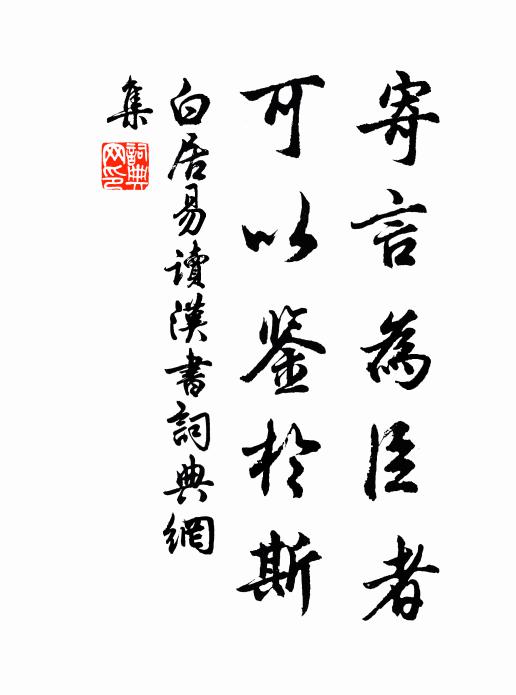 寄言為臣者
可以鉴於斯
白居易讀漢書詞典網
集
詞典
网印